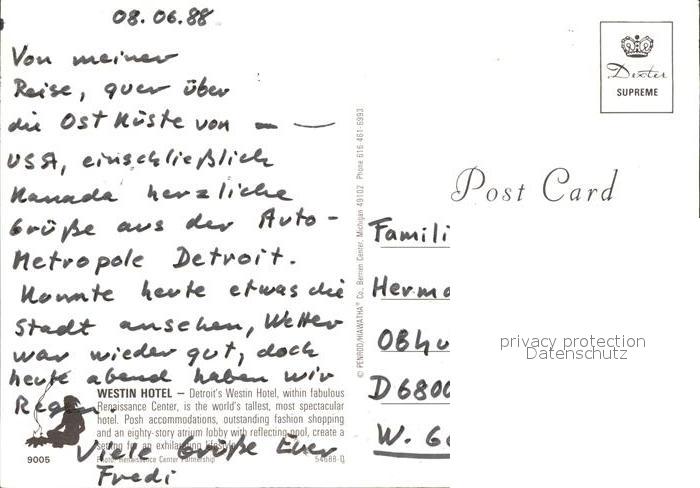 08.06.88
Von meiner
Reise, quer über
die Ostküste von
USA, einschließlich
Kanada herzliche
Grüße aus der Auto-
Metropole Detroit.
Konnte heute etwas die
Stadt ansehen, Wetter
war wieder gut, doch
heute abend haben wir
Regen.
Viele Grüße Euer
Fredi
WESTIN HOTEL — Detroit's Westin Hotel, within fabulous
Renaissance Center, is the world's tallest, most spectacular
hotel. Posh accommodations, outstanding fashion shopping
and an eighty-story atrium lobby with reflecting pool, create a
setting for an exhilarating lifestyle.
Photo: Renaissance Center Partnership
54688-D
9005
© PENROD/HIAWATHA® Co., Berrien Center, Michigan 49102 Phone 616-461-6993
Dexter
SUPREME
Post Card
Famili
Herma
OBhu
D6800
W. Ge
privacy protection
Datenschutz